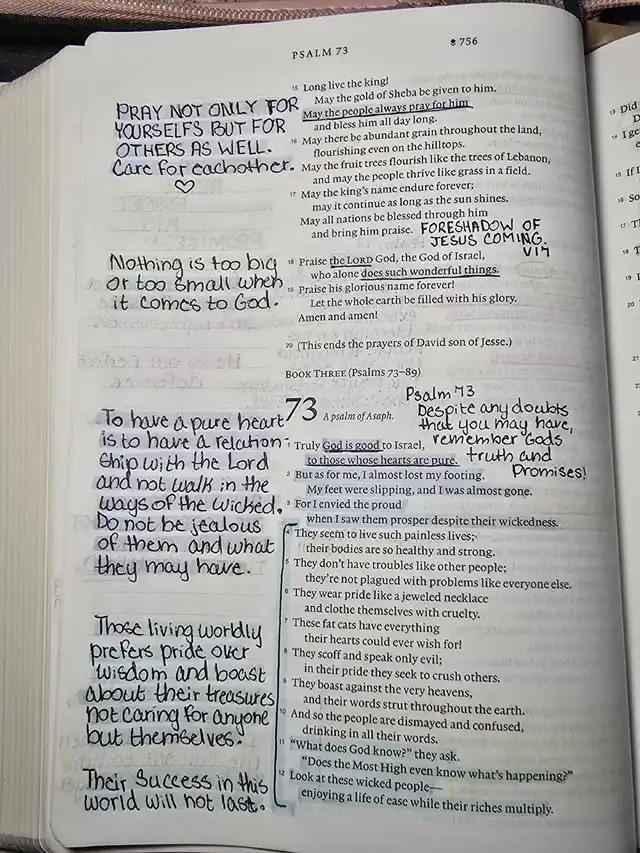 PSALM 73
756
PRAY NOT ONLY FOR
YOURSELFS BUT FOR
OTHERS AS WELL.
Care for eachother.
♡
Nothing is too big
or too small when
it comes to God.
To have a pure heart
is to have a relation-
ship with the Lord
and not walk in the
ways of the wicked.
Do not be jealous
of them and what
they may have.
Those living worldly
prefers pride over
wisdom and boast
about their treasures
not caring for anyone
but themselves.
Their success in this
world will not last.
15 Long live the king!
May the gold of Sheba be given to him.
May the people always pray for him
and bless him all day long.
16 May there be abundant grain throughout the land,
flourishing even on the hilltops.
May the fruit trees flourish like the trees of Lebanon,
and may the people thrive like grass in a field.
17 May the king's name endure forever;
may it continue as long as the sun shines.
May all nations be blessed through him
and bring him praise.
FORESHADOW OF
JESUS COMING.
V17
18 Praise the LORD God, the God of Israel,
who alone does such wonderful things.
19 Praise his glorious name forever!
Let the whole earth be filled with his glory.
Amen and amen!
20 (This ends the prayers of David son of Jesse.)
BOOK THREE (Psalms 73–89)
73 A psalm of Asaph.
Psalm 73
Despite any doubts
that you may have,
remember Gods
truth and
Promises!
1 Truly God is good to Israel,
to those whose hearts are pure.
2 But as for me, I almost lost my footing.
My feet were slipping, and I was almost gone.
3 For I envied the proud
when I saw them prosper despite their wickedness.
4 They seem to live such painless lives;
their bodies are so healthy and strong.
5 They don't have troubles like other people;
they're not plagued with problems like everyone else.
6 They wear pride like a jeweled necklace
and clothe themselves with cruelty.
7 These fat cats have everything
their hearts could ever wish for!
8 They scoff and speak only evil;
in their pride they seek to crush others.
9 They boast against the very heavens,
and their words strut throughout the earth.
10 And so the people are dismayed and confused,
drinking in all their words.
11 "What does God know?" they ask.
"Does the Most High even know what's happening?"
12 Look at these wicked people—
enjoying a life of ease while their riches multiply.
13 Did
15 If I
16 So